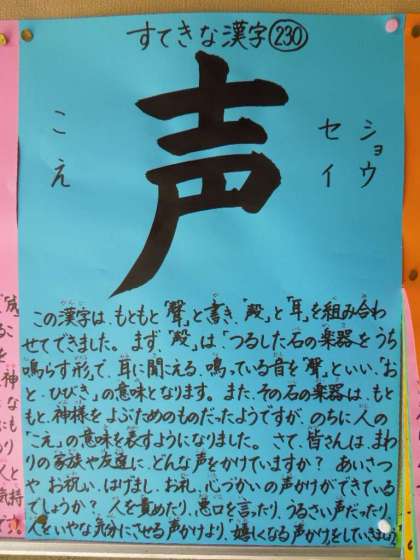 すてきな漢字 230
声
こえ
セイ
ショウ
この漢字は、もともと「聲」と書き、「殸」と「耳」を組み合わ
せてできました。まず、「殸」は、「つるした石の楽器」をうち
鳴らす形で、耳に聞える、鳴っている音を「聲」といい、「お
と、ひびき」の意味となります。また、その石の楽器は、もと
もと、神様をよぶためのものだったようですが、のちに人の
「こえ」の意味を表すようになりました。さて、皆さんは、まわ
りの家族や友達に、どんな声をかけていますか？あいさつ
や、お祝い、はげまし、お礼、心づかいの声かけができている
でしょうか？人を責めたり、悪口を言ったり、うるさい声だったり、
人をいやな気分にさせる声かけより、「嬉しくなる声かけ」をしていきましょう